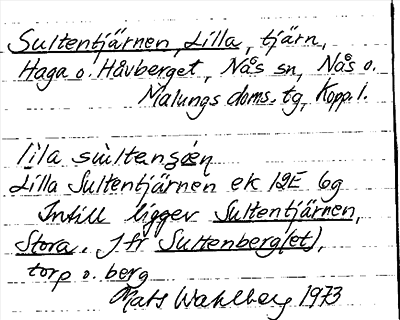 Sultentjärnen, Lilla, tjärn,
Haga o. Håvberget, Nås sn, Nås o.
Malungs doms. tg, Kopp. l.
lila sultensǥen
Lilla Sultentjärnen ek 12E 6g
Intill ligger Sultentjärnen,
Stora. Jfr Sultenberg(et),
torp o. berg
Mats Wahlberg 1973